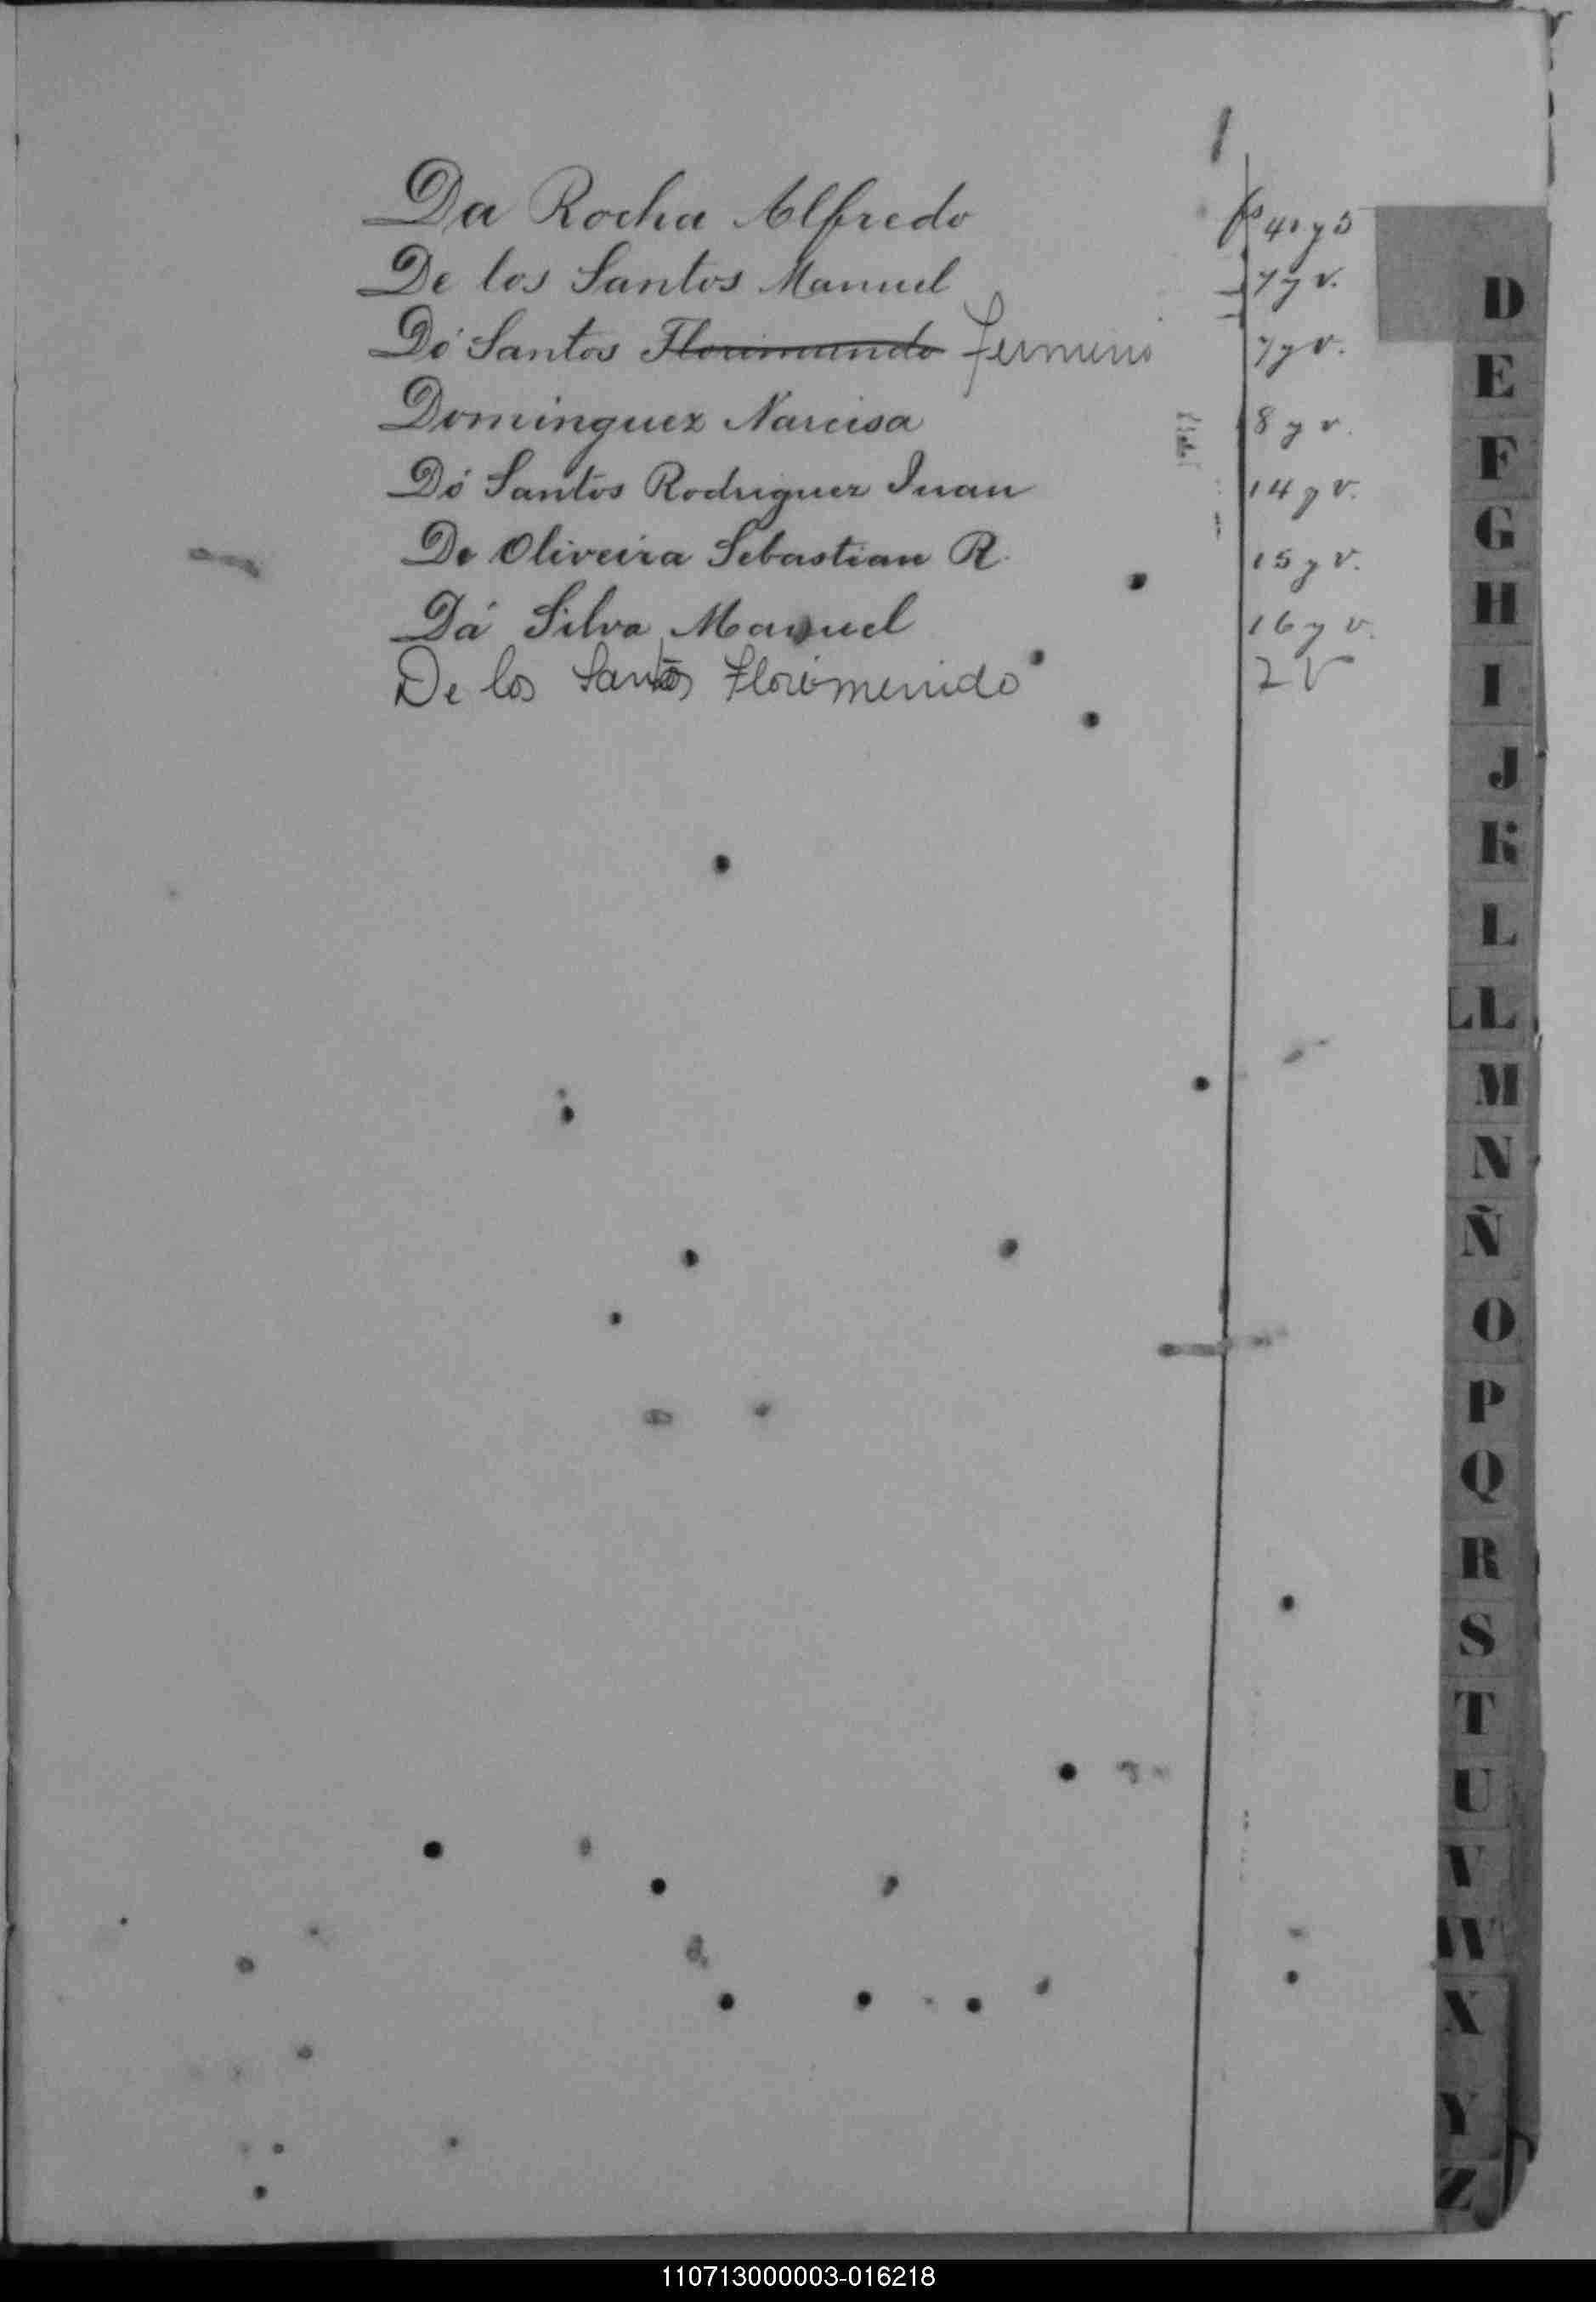 Da Rocha Alfredo
De los Santos Manuel 7 y v.
Dó Santos Florimundo 7 y v.
Dominguez Narcisa 8 y v.
Dó Santos Rodriguez Juan 14 y v.
De Oliveira Sebastian R. 15 y v.
Dá Silva Manuel 16 y v.
De los Santos 2 v
D
E
F
G
H
I
J
K
L
LL
M
N
Ñ
O
P
Q
R
S
T
U
V
W
X
Y
Z
110713000003-016218